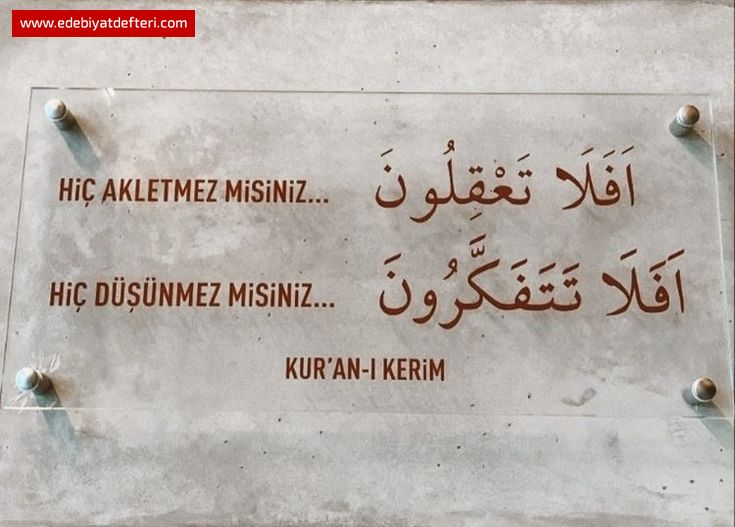 www.edebiyatdefteri.com
HiÇ AKLETMEZ MiSiNiZ... اَفَلَا تَعْقِلُونَ
HiÇ DÜŞÜNMEZ MiSiNiZ... اَفَلَا تَتَفَكَّرُونَ
KUR'AN-I KERiM